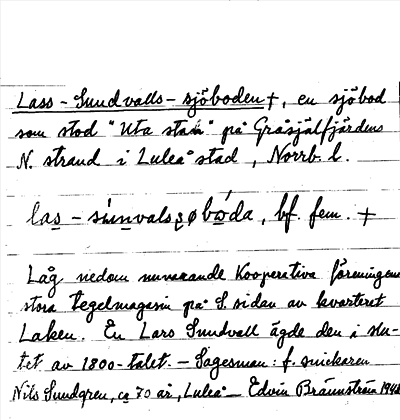 Lass-Sundvalls-sjöboden †, en sjöbod
som stod "Uta stan" på Gråsjälfjärdens
N. strand i Luleå stad, Norrb. l.
las-súnvalsʂøbòda, bf. fem. †
Låg nedom nuvarande Kooperativa föreningens
stora tegelmagasin på S. sidan av kvarteret
Laken. En Lars Sundvall ägde den i slu-
tet av 1800-talet. – Sagesman: f. snickaren
Nils Sundgren, ca 70 år, Luleå – Edvin Brännström